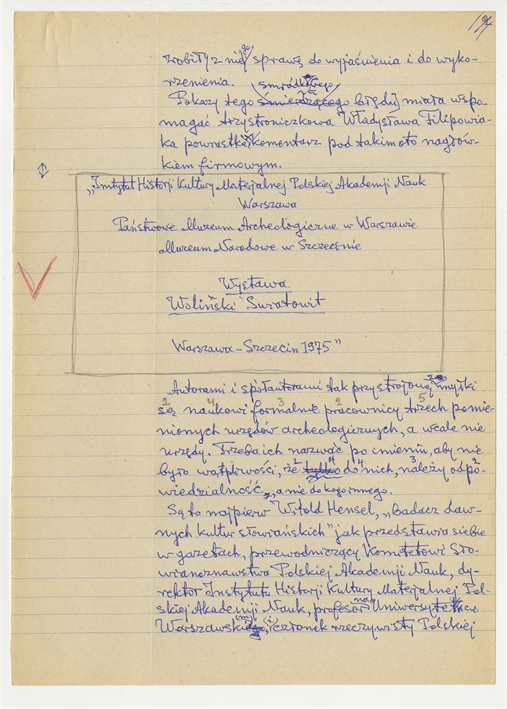 19
zrobiły z niej sprawę do wyjaśnienia i do wyko-
rzenienia.
Pokazy tego śmierdzącego błędu miała wspo-
magać trzystroniczkowa Władysława Filipowia-
ka powiastka-komentarz pod takim oto nagłów-
kiem firmowym.
„Instytut Historji Kultury Materjalnej Polskiej Akademji Nauk
Warszawa
Państwowe Muzeum Archeologiczne w Warszawie
Muzeum Narodowe w Szczecinie
Wystawa
Woliński Swiatowit
Warszawa - Szczecin 1975”
Autorami i spółautorami tak przystrojonej zmyłki
są naukowi formalnie pracownicy trzech pomie-
nionych urzędów archeologicznych, a wcale nie
urzędy. Trzeba ich nazwać po imieniu, aby nie
było wątpliwości, że tylko do nich, należy odpo-
wiedzialność, a nie do kogo innego.
Są to najpierw Witold Hensel, „badacz daw-
nych kultur słowiańskich” jak przedstawia siebie
w gazetach, przewodniczący Komitetowi Sło-
wianoznawstwa Polskiej Akademji Nauk, dy-
rektor Instytutu Historji Kultury Materjalnej Pol-
skiej Akademji Nauk, profesor na Uniwersytetcie
Warszawskim, i członek rzeczywisty Polskiej